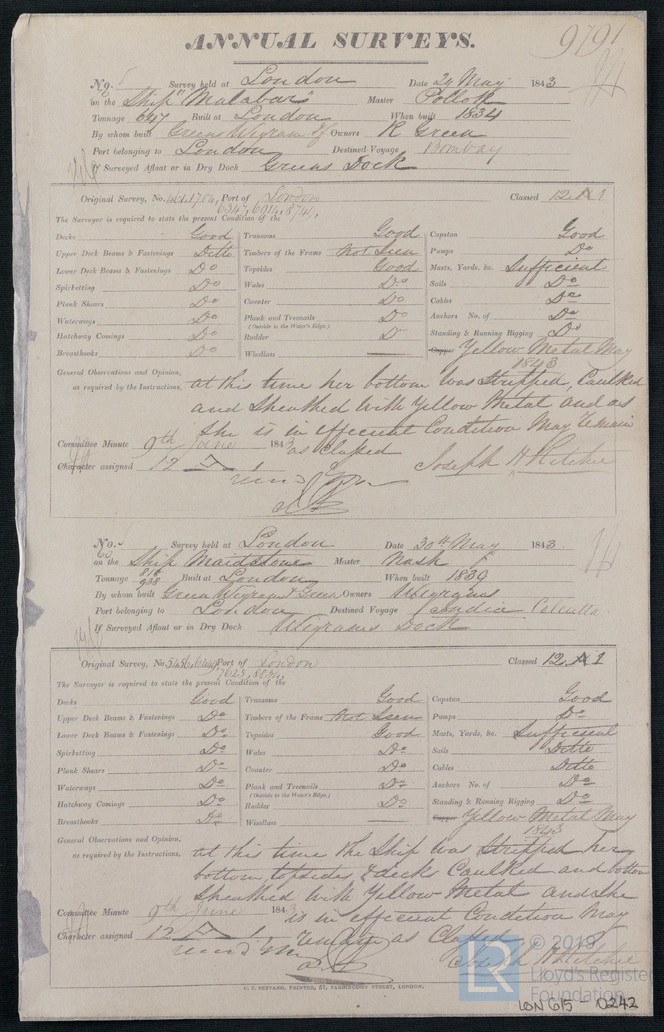 ANNUAL SURVEYS.
9791
No. Survey held at London Date 29 May 1843
on the Ship "Malabar" Master Pollock
Tonnage 647 Built at London When built 1834
By whom built Greens Wigrams & Owners R Green
Port belonging to London Destined Voyage Bombay
If Surveyed Afloat or in Dry Dock Greens Dock
Original Survey, No. Port of London Classed 12 A 1
6347, 6914, 8741,
The Surveyor is required to state the present Condition of the
Decks Good Transoms Good Capstan Good
Upper Deck Beams & Fastenings Ditto Timbers of the Frame Not Seen Pumps Do
Lower Deck Beams & Fastenings Do Topsides Good Masts, Yards, &c. Sufficient
Spirketting Do Wales Do Sails Do
Plank Shears Do Counter Do Cables Do
Waterways Do Plank and Treenails Do Anchors No. of Do
(Outside to the Water's Edge.)
Hatchway Comings Do Rudder D Standing & Running Rigging Do
Breasthooks Do Windlass — Copper Yellow Metal May
1843
General Observations and Opinion, at this time her bottom was Stripped, Caulked
as required by the Instructions, and Sheathed with Yellow Metal and as
She is in efficient Condition May Remain
Committee Minute 9th June 1843 as classed
Character assigned 12 A 1 Joseph H Ritchie
No. Survey held at London Date 30th May 1843
on the Ship Maidstone Master Nash
Tonnage 818 938 Built at London When built 1839
By whom built Green Wigrams & Green Owners Wigrams
Port belonging to London Destined Voyage Calcutta
If Surveyed Afloat or in Dry Dock Wigrams Dock
Original Survey, No. Port of London Classed 12 A 1
The Surveyor is required to state the present Condition of the
Decks Good Transoms Good Capstan Good
Upper Deck Beams & Fastenings Do Timbers of the Frame Not Seen Pumps Do
Lower Deck Beams & Fastenings Do Topsides Good Masts, Yards, &c. Sufficient
Spirketting Do Wales Do Sails Ditto
Plank Shears Do Counter Do Cables Ditto
Waterways Do Plank and Treenails Do Anchors No. of Do
(Outside to the Water's Edge.)
Hatchway Comings Do Rudder Do Standing & Running Rigging Do
Breasthooks Do Windlass — Copper Yellow Metal May
1843
General Observations and Opinion, at this time the Ship was Stripped her
as required by the Instructions, bottom, topsides, & decks Caulked and bottom
Sheathed with Yellow Metal and She
Committee Minute 9th June 1843 is in efficient Condition May
Character assigned 12 A 1 remain as Classed
Joseph H Ritchie
C. F. SEYFANG, PRINTED, 57, FARRINGDON STREET, LONDON.
LR © 2019
Lloyd's Register
Foundation
LON 615 0242